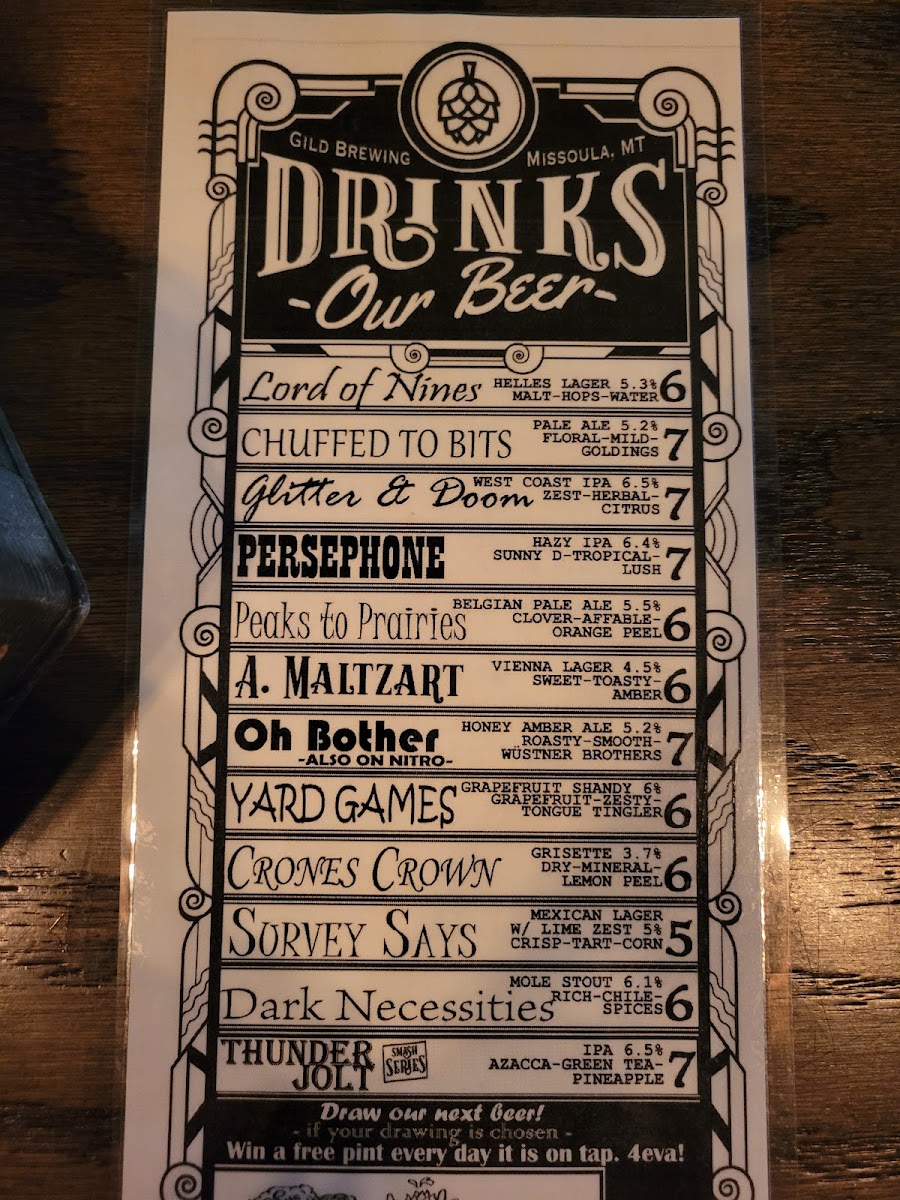 GILD BREWING MISSOULA, MT
DRINKS
-Our Beer-
Lord of Nines HELLES LAGER 5.3% 6
MALT-HOPS-WATER
CHUFFED TO BITS PALE ALE 5.2% 7
FLORAL-MILD-
GOLDINGS
Glitter & Doom WEST COAST IPA 6.5% 7
ZEST-HERBAL-
CITRUS
PERSEPHONE HAZY IPA 6.4% 7
SUNNY D-TROPICAL-
LUSH
Peaks to Prairies BELGIAN PALE ALE 5.5% 6
CLOVER-AFFABLE-
ORANGE PEEL
A. MALTZART VIENNA LAGER 4.5% 6
SWEET-TOASTY-
AMBER
Oh Bother HONEY AMBER ALE 5.2% 7
-ALSO ON NITRO- ROASTY-SMOOTH-
WÜSTNER BROTHERS
YARD GAMES GRAPEFRUIT SHANDY 6% 6
GRAPEFRUIT-ZESTY-
TONGUE TINGLER
CRONES CROWN GRISETTE 3.7% 6
DRY-MINERAL-
LEMON PEEL
SURVEY SAYS MEXICAN LAGER 5
W/ LIME ZEST 5%
CRISP-TART-CORN
Dark Necessities MOLE STOUT 6.1% 6
RICH-CHILE-
SPICES
THUNDER JOLT SMASH SERIES IPA 6.5% 7
AZACCA-GREEN TEA-
PINEAPPLE
Draw our next beer!
- if your drawing is chosen -
Win a free pint every day it is on tap. 4eva!